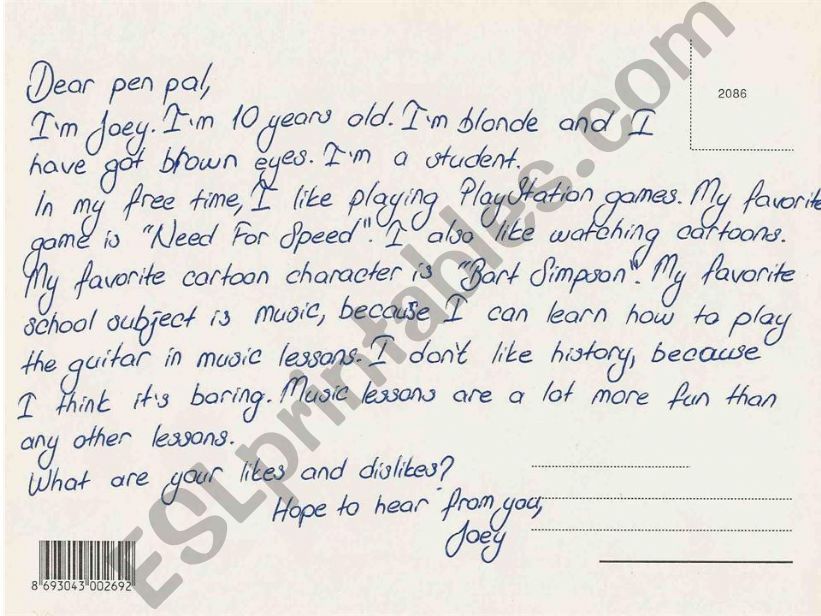 Dear pen pal,
2086
I'm Joey. I'm 10 years old. I'm blonde and I
have got brown eyes. I'm a student.
In my free time, I like playing PlayStation games. My favorite
game is "Need For Speed". I also like watching cartoons.
My favorite cartoon character is "Bart Simpson". My favorite
school subject is music, because I can learn how to play
the guitar in music lessons. I don't like history, because
I think it's boring. Music lessons are a lot more fun than
any other lessons.
What are your likes and dislikes?
Hope to hear from you,
Joey
8 693043 002692
ESLprintables.com